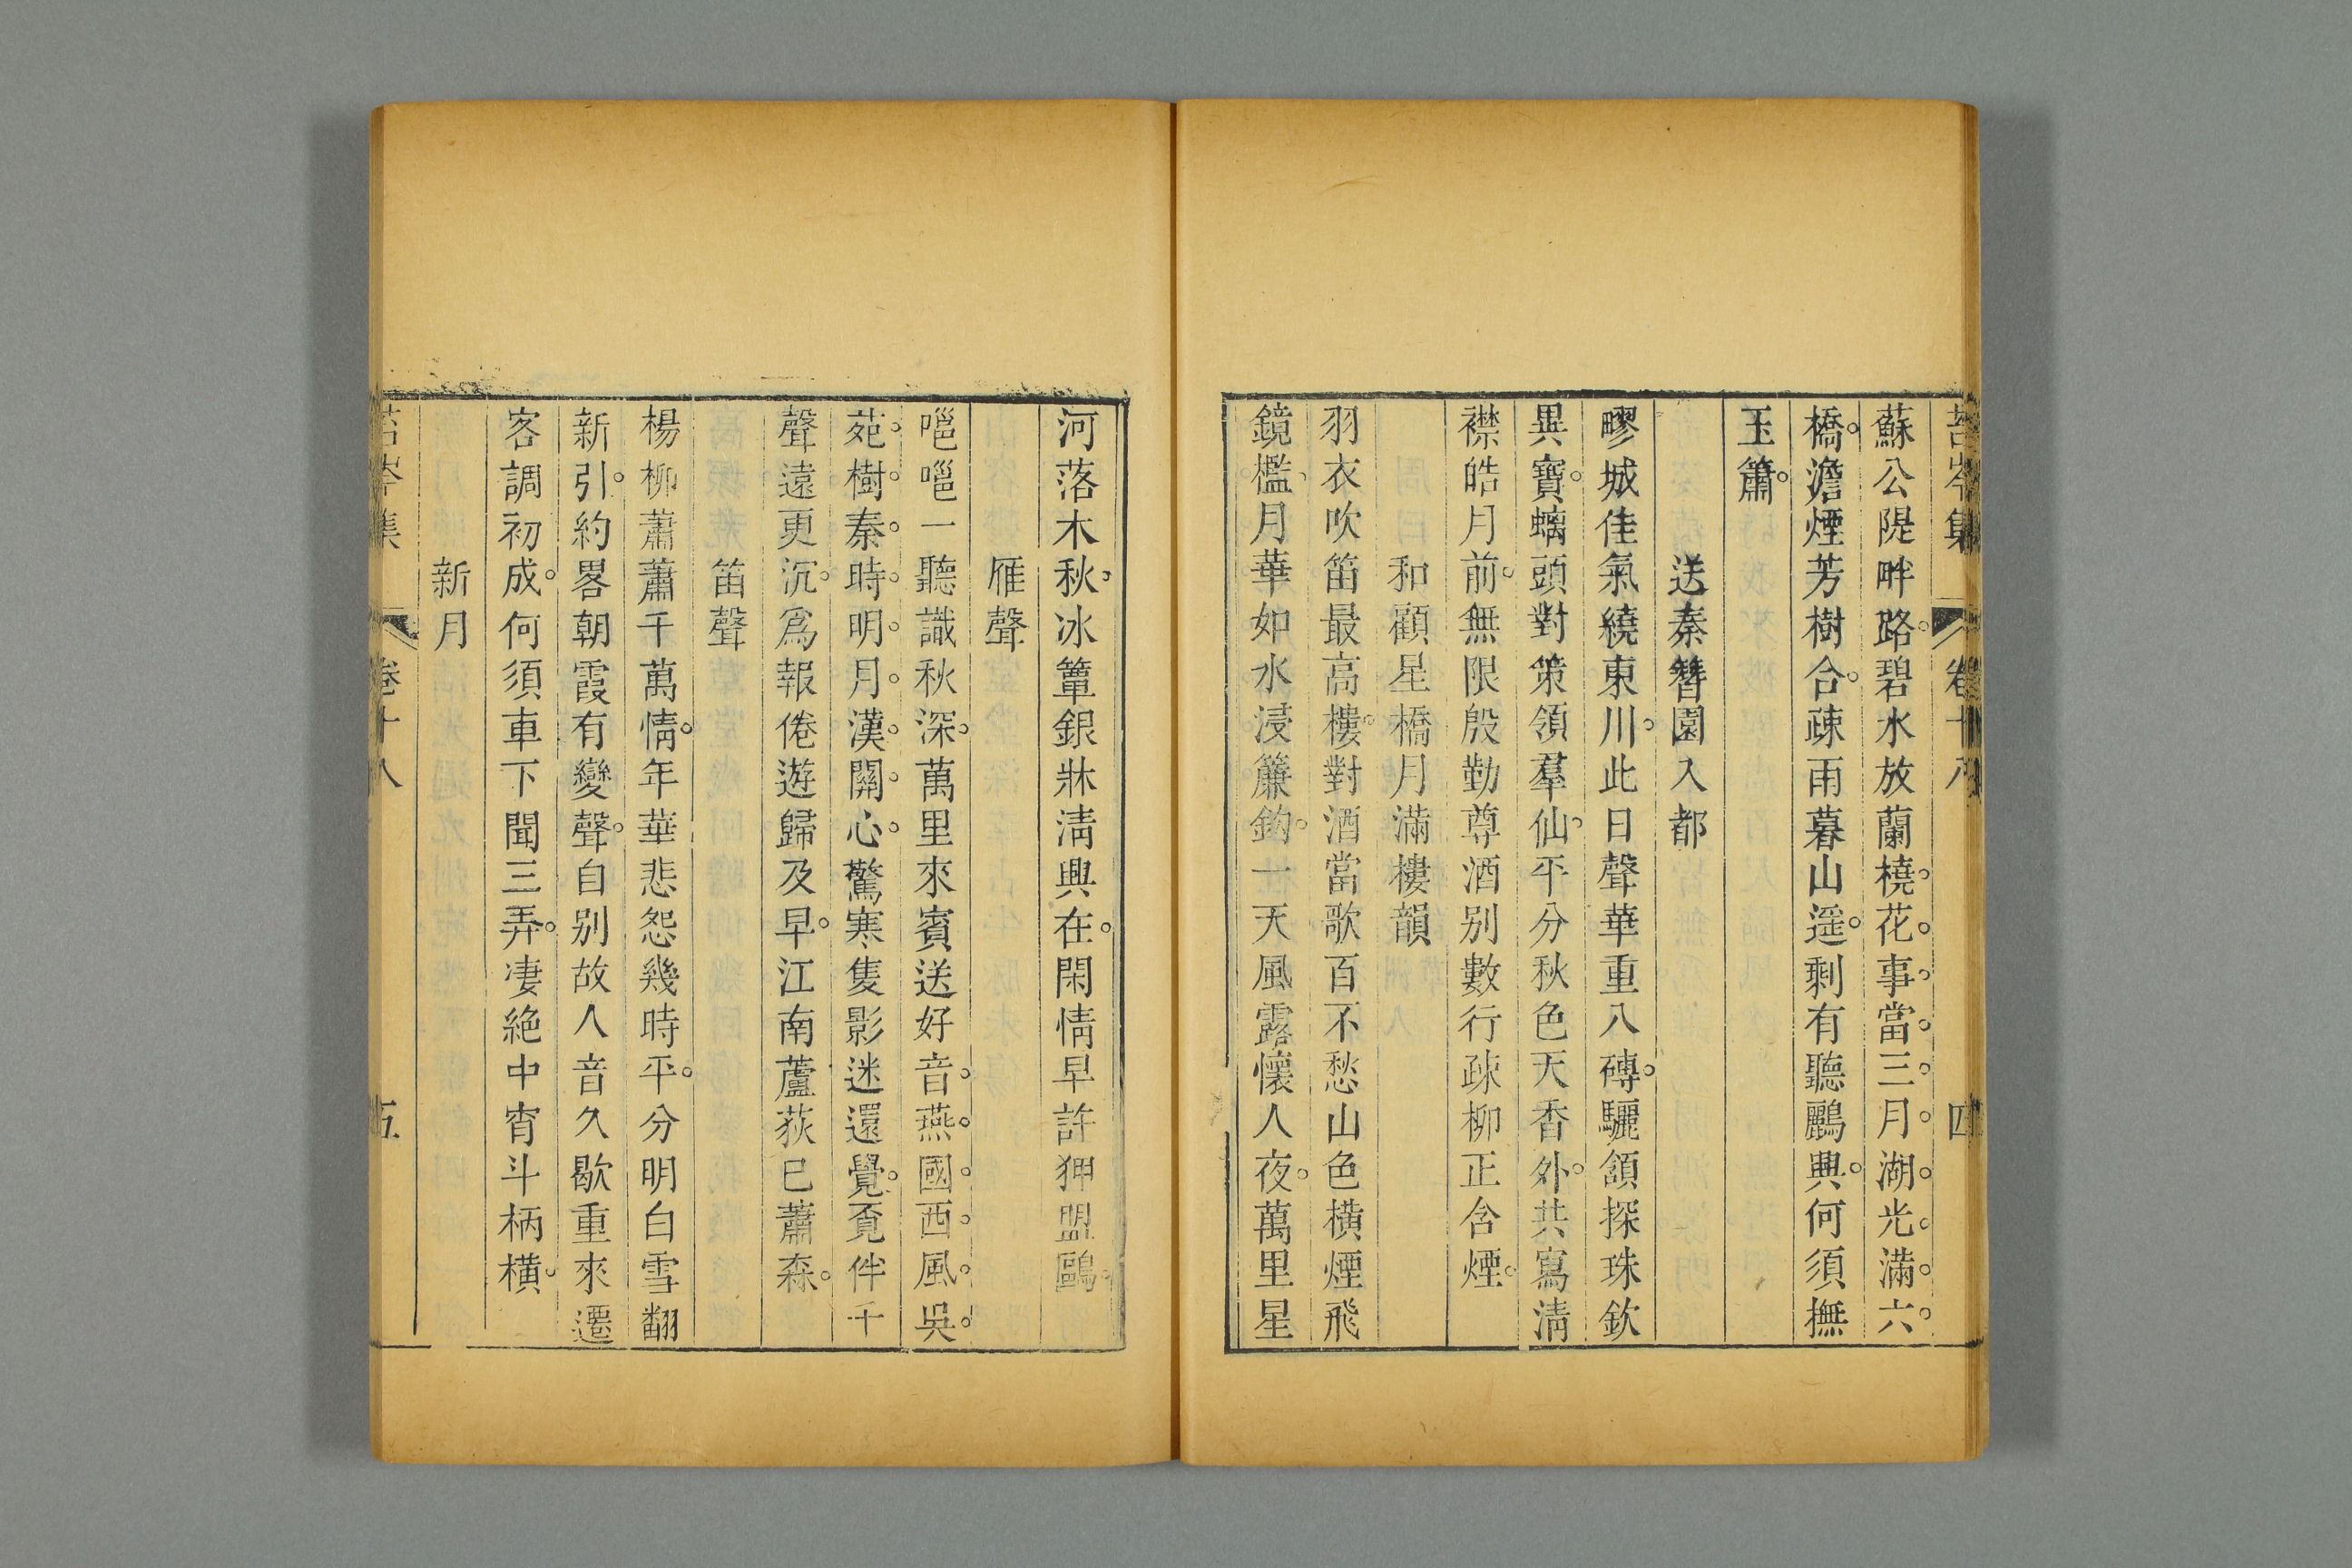 苔岑集 卷十八 四
蘇公隄畔路。碧水放蘭橈。花。事。當。三。月。湖。光。滿。六。
橋。澹煙芳樹合。疎雨暮山遥。剩有聽鸝興。何須撫
玉簫。
送秦簪園入都
疁城佳氣繞東川。此日聲華重八磚。驪頷探珠欽
異寶。螭頭對策領羣仙。平分秋色天香外。共寫清
襟皓月前。無限殷勤尊酒别。數行疎柳正含煙。
和顧星橋月滿樓韻
羽衣吹笛最高樓。對酒當歌百不愁。山色橫煙飛
鏡檻。月華如水浸簾鈎。一天風露懷人夜。萬里星
河落木秋。冰簟銀牀清興在。閑情早許狎盟鷗。
雁聲
嗈嗈一聽識秋深。萬里來賓送好音。燕。國。西。風。吳。
苑。樹。秦。時。明。月。漢。關。心。驚寒隻影迷還覺。覔伴千
聲遠更沉。爲報倦遊歸及早。江南蘆荻已蕭森。
笛聲
楊柳蕭蕭千萬情。年華悲怨幾時平。分明白雪翻
新引。約畧朝霞有變聲。自别故人音久歇。重來遷
客調初成。何須車下聞三弄。凄絶中宵斗柄橫。
新月
苔岑集 卷十八 五